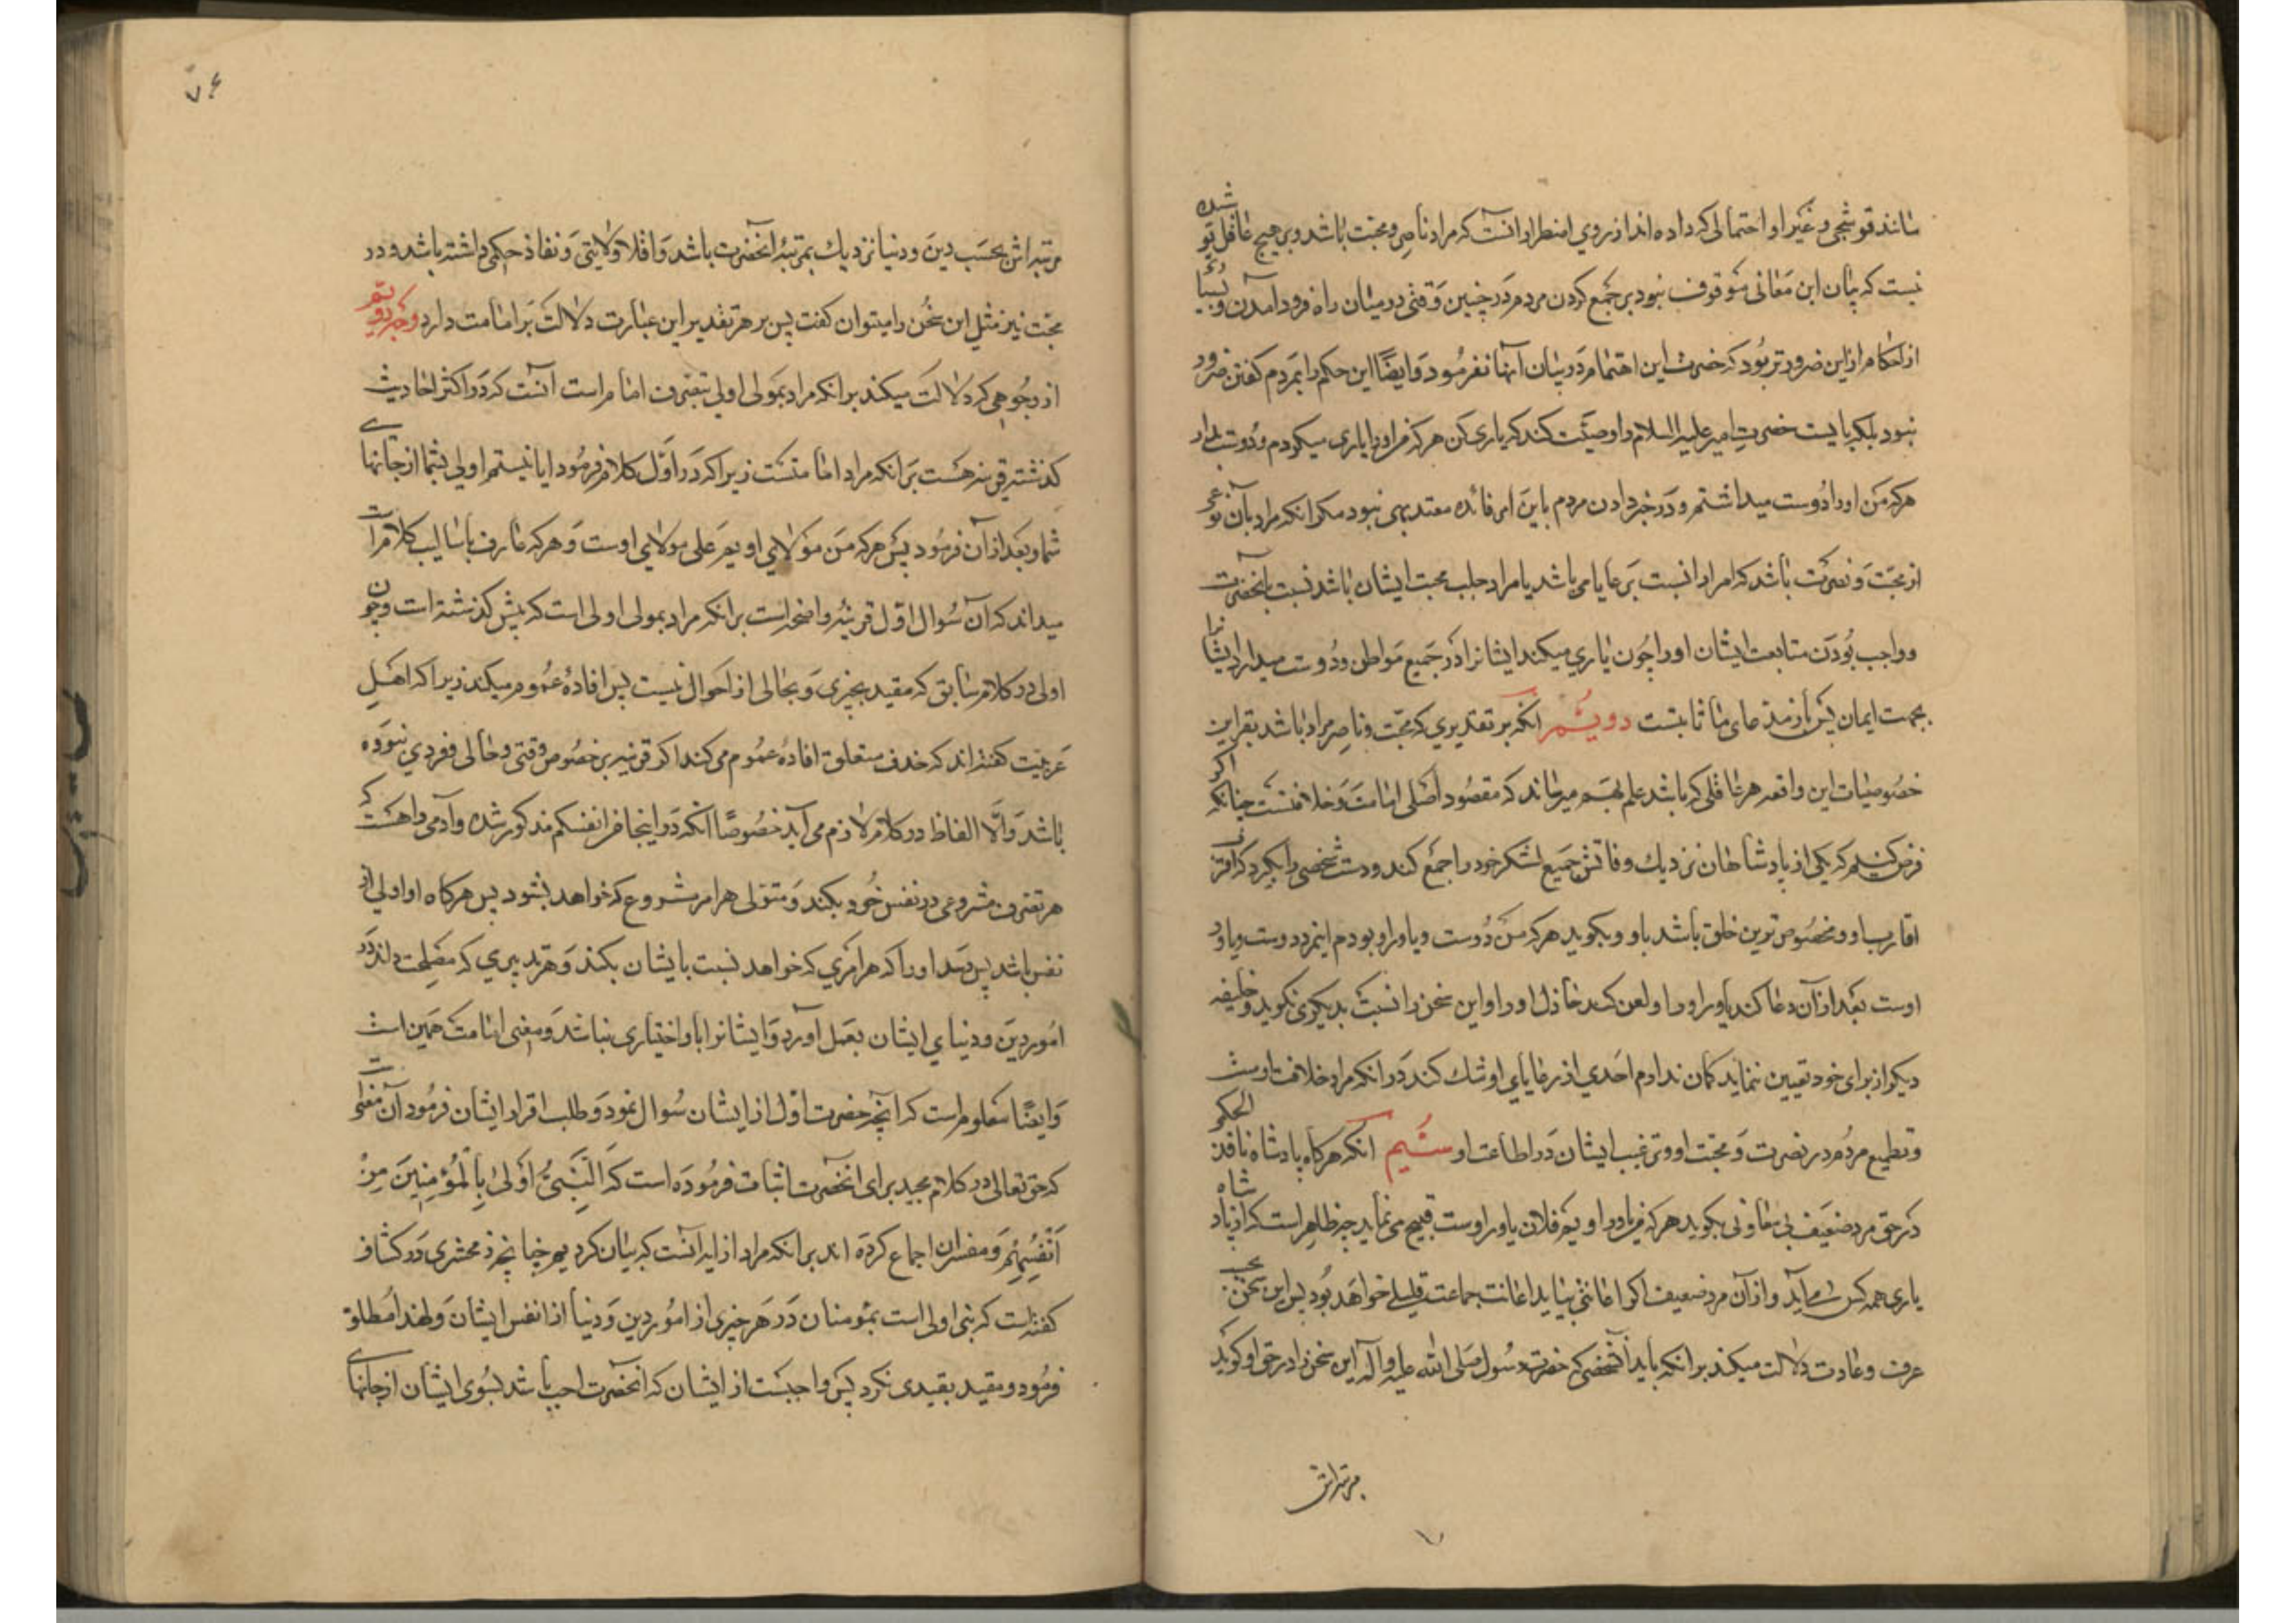 مانند قوشجی و غیر او احتمالی که داده اند از روی اضطرار انست که مراد ناصر و محبت باشد و بر هیچ عاقل پوشیده
نیست که بیان این معانی موقوف نبود بر جمع کردن مردم در چنین وقتی در میان راه فرود آمدن و بسیاری
از احکام ازین ضرورتر بود که حضرت این اهتمام در بیان آنها نفرمود و ایضًا این حکم را بمردم کفتن ضرور
نبود بلکه بایست حضرت امیر علیه السلام را وصیت کند که یاری کن هر که من او را یاری میکردم و دوست بدار
هر که من او را دوست میداشتم و در خبر دادن مردم باین امر فائده معتد بهی نبود مکر انکه مراد بآن نوعی
از محبت و نصرت باشد که امرا را نسبت برعایا می باشد یا مراد جلب محبت ایشان باشد نسبت بانحضرت
و واجب بودن متابعت ایشان او را چون یاری میکند ایشانرا در جمیع مواطن و دوست میدارد ایشانرا
بجهت ایمان پس باز مدعای ما ثابتست دویم انکه بر تقدیری که محبت و ناصر مراد باشد بقراین
خصوصیات این واقعه هر عاقلی که باشد علم بهم میرساند که مقصود اصلی امامت و خلافتست چنانکه اکر
فرض کنیم که یکی از پادشاهان نزدیک وفاتش جمیع لشکر خود را جمع کند و دست شخصی را بکیرد که اقرب
اقارب او و مخصوص ترین خلق باشد باو و بکوید هر که من دوست و یاور او بودم اینمرد دوست و یاور
اوست بعد از آن دعا کند یاور او را و لعن کند خاذل او را و این سخن را نسبت بدیکری نکوید و خلیفه
دیکر از برای خود تعیین ننماید کمان ندارم احدی از رعایای او شک کند در انکه مراد خلافت اوست
و تطمیع مردم در نصرت و محبت او و ترغیب ایشان در اطاعت او سیم انکه هرکاه پادشاه نافذ الحکم
در حق مرد ضعیف بی معاونی بکوید هر که من یاور او یم فلان یاور اوست قبیح می نماید چه ظاهر است که از پادشاه
یاری همه کس می آید و از آن مرد ضعیف اکر اعانتی بیاید اعانت جماعت قلیلی خواهد بود پس این سخن بحسب
عرف و عادت دلالت میکند بر انکه باید آنشخصی که حضرت رسول صلی الله علیه و آله این سخن را در حق او کوید
مرتبه اش
۷۶
مرتبه اش بحسب دین و دنیا نزدیک بمرتبۀ انحضرت باشد و اقلا ولایتی و نفاذ حکمی داشته باشد و در
محبت نیز مثل این سخن را میتوان کفت پس بر هر تقدیر این عبارت دلالت بر امامت دارد وجه دویم
از وجوهی که دلالت میکند بر انکه مراد بمولی اولی بتصرف و امام است آنست که در اکثر احادیث
کذشته قرینه هست بر انکه مراد امامتست زیرا که در اول کلام فرمود ایا نیستم اولی بشما از جانهای
شما و بعد از آن فرمود پس هر که من مولای او یم علی مولای اوست و هر که عارف باسالیب کلام است
میداند که آن سوال اول قرینۀ واضحه است بر انکه مراد بمولی اولی است که پیش کذشته است و چون
اولی در کلام سابق که مقید بچیزی و بحالی از احوال نیست پس افادۀ عموم میکند زیرا که اهل
عربیت کفته اند که حذف متعلق افادۀ عموم می کند اکر قرینه بر خصوص وقتی و حالی و فردی نبوده
باشد و الا الفاظ در کلام لازم می آید خصوصًا انکه در اینجا من انفسکم مذکور شده و آدمی را هست که
هر تصرف مشروعی در نفس خود بکند و متولی هر امر مشروع که خواهد بشود پس هرکاه او اولی از
نفس باشد پس رسد او را که هر امری که خواهد نسبت بایشان بکند و هر تدبیری که مصلحت داند در
امور دین و دنیای ایشان بعمل آورد و ایشانرا با او اختیاری نباشد و معنی امامت همین است
و ایضًا معلوم است که آنچه حضرت اول از ایشان سوال نمود و طلب اقرار ایشان فرمود آن معنی است
که حق تعالی در کلام مجید برای انحضرت اثبات فرموده است که اَلنَّبِیُّ اَوْلیٰ بِالْمُؤْمِنِینَ مِنْ
اَنْفُسِهِمْ و مفسران اجماع کرده اند بر انکه مراد از ایه انست که بیان کردیم چنانچه زمخشری در کشاف
کفته است که نبی اولی است بمؤمنان در هر چیزی از امور دین و دنیا از انفس ایشان و لهذا مطلق
فرمود و مقید بقیدی نکرد پس واجبست از ایشان که انحضرت احب باشد بسوی ایشان از جانهای